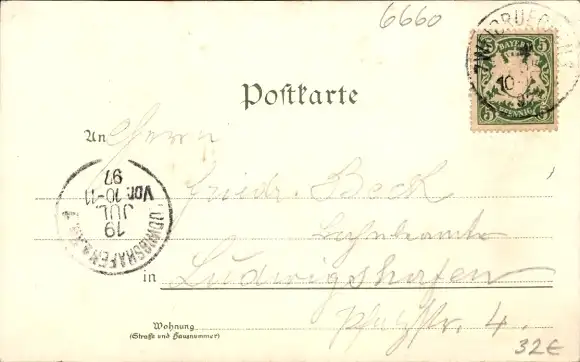 6660
ZWEIBRUECKEN
BAYERN
5 5
5 PFENNIG 5
Postkarte
An Herrn
Friedr. Beck
Bahnbeamte
in Ludwigshafen
Wohnung
(Straße und Hausnummer)
4.
LUDWIGSHAFEN A. RH.
19
JUL
Vor. 10-11
97
32€